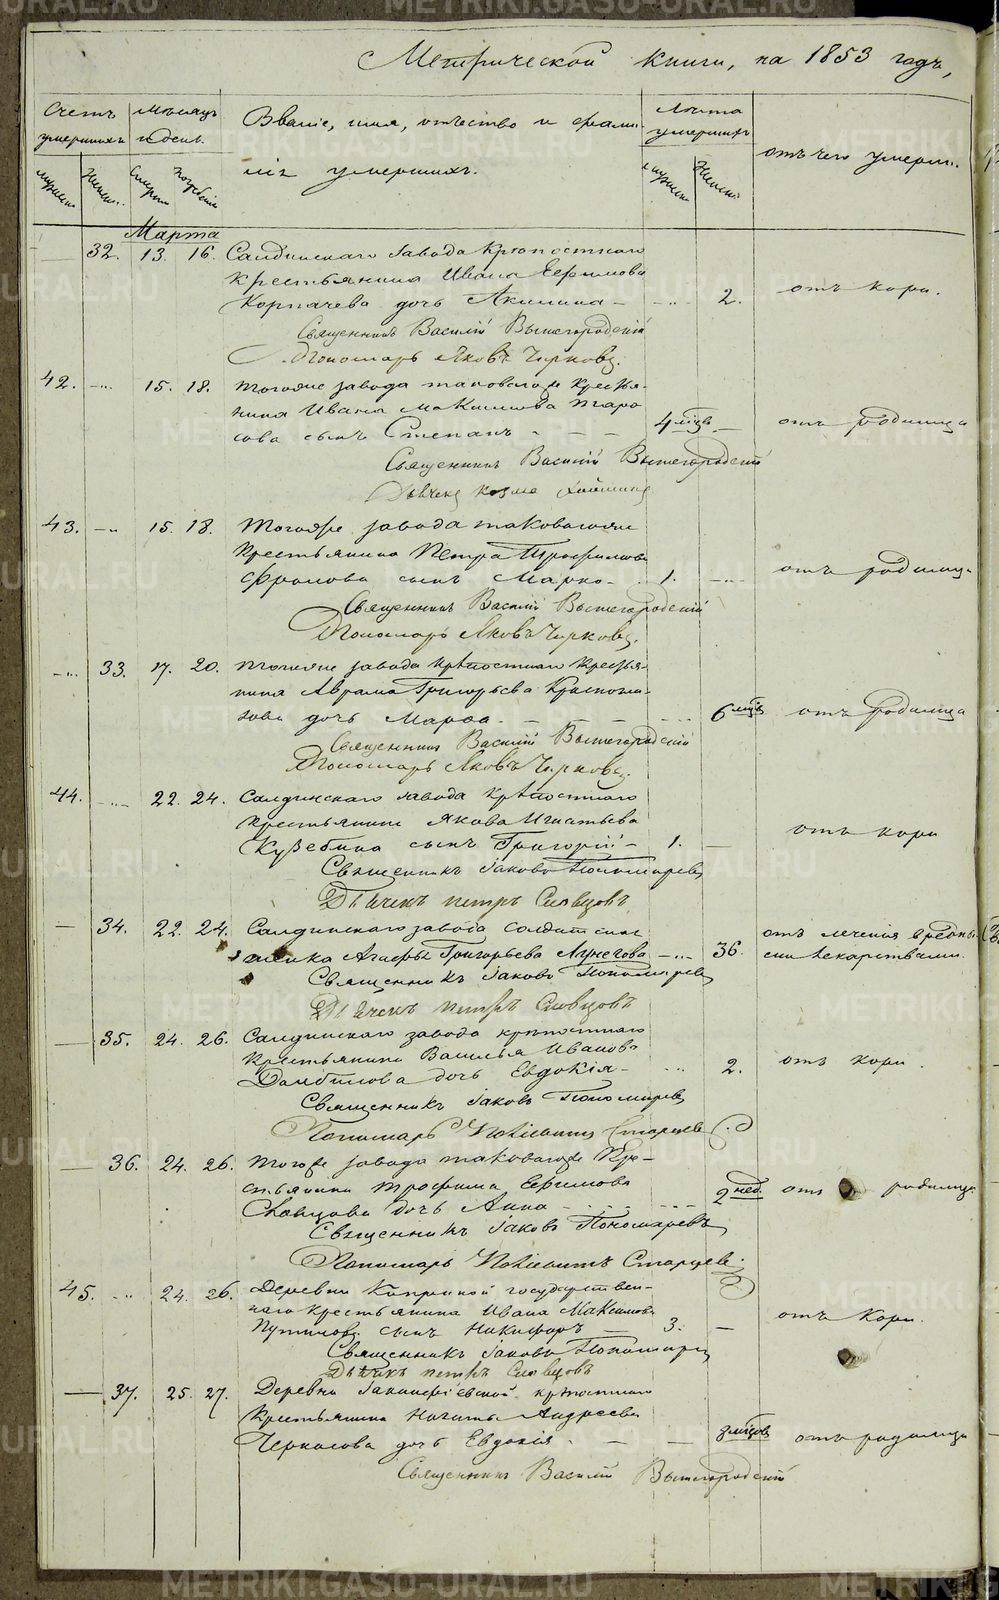 Метрической книги, на 1853 годъ,
Счетъ умершихъ
Мѣсяцъ и день.
Званіе, имя, отчество и фамилія умершихъ.
Лѣта умершихъ
отъ чего умерли.
Марта
32. 13. 16. Салдинскаго завода крѣпостнаго
крестьянина Ивана Ефимова
Корпачева дочь Акилина 2. отъ кори.
Священникъ Василій Вышегородскій
Пономарь Яковъ Чирковъ.
42. 15. 18. Тогоже завода таковагоже крестья-
нина Ивана Максимова Тара-
сова сынъ Степанъ 4 мѣся. отъ родимца
Священникъ Василій Вышегородскій
Дьячекъ Козма
43. 15. 18. Тогоже завода таковагоже
крестьянина Петра Трофимова
Фролова сынъ Марко 1. отъ родимца
Священникъ Василій Вышегородскій
Пономарь Яковъ Чирковъ.
33. 17. 20. Тогоже завода крѣпостнаго крестья-
нина Аврама Григорьева
дочь Марѳа 6 мѣся отъ родимца
Священникъ Василій Вышегородскій
Пономарь Яковъ Чирковъ.
44. 22. 24. Салдинскаго завода крѣпостнаго
крестьянина Якова Игнатьева
сынъ Григорій 1. отъ кори
Священникъ Іаковъ Пономаревъ
Дьячекъ Петръ Словцовъ
34. 22. 24. Салдинскаго завода солдатская
женка Григорьева 36. отъ леченія вредны-
ми лекарствами.
Священникъ Іаковъ Пономаревъ
Дьячекъ Петръ Словцовъ
35. 24. 26. Салдинскаго завода крѣпостнаго
крестьянина Василья Иванова
дочь Евдокія 2. отъ кори.
Священникъ Іаковъ Пономаревъ
Пономарь Старцевъ
36. 24. 26. Тогоже завода таковагоже кре-
стьянина Трофима Ефимова
дочь Анна 2 нед. отъ родимца
Священникъ Іаковъ Пономаревъ
Пономарь Старцевъ
45. 24. 26. Деревни государствен-
наго крестьянина Ивана Максимова
Путилова сынъ Никифоръ 3. отъ кори.
Священникъ Іаковъ Пономаревъ
Дьячекъ Петръ Словцовъ
37. 25. 27. Деревни крѣпостнаго
крестьянина Никиты Андреева
Черкасова дочь Евдокія 3 мѣсяц отъ родимца
Священникъ Василій Вышегородскій
METRIKI.GASO-URAL.RU